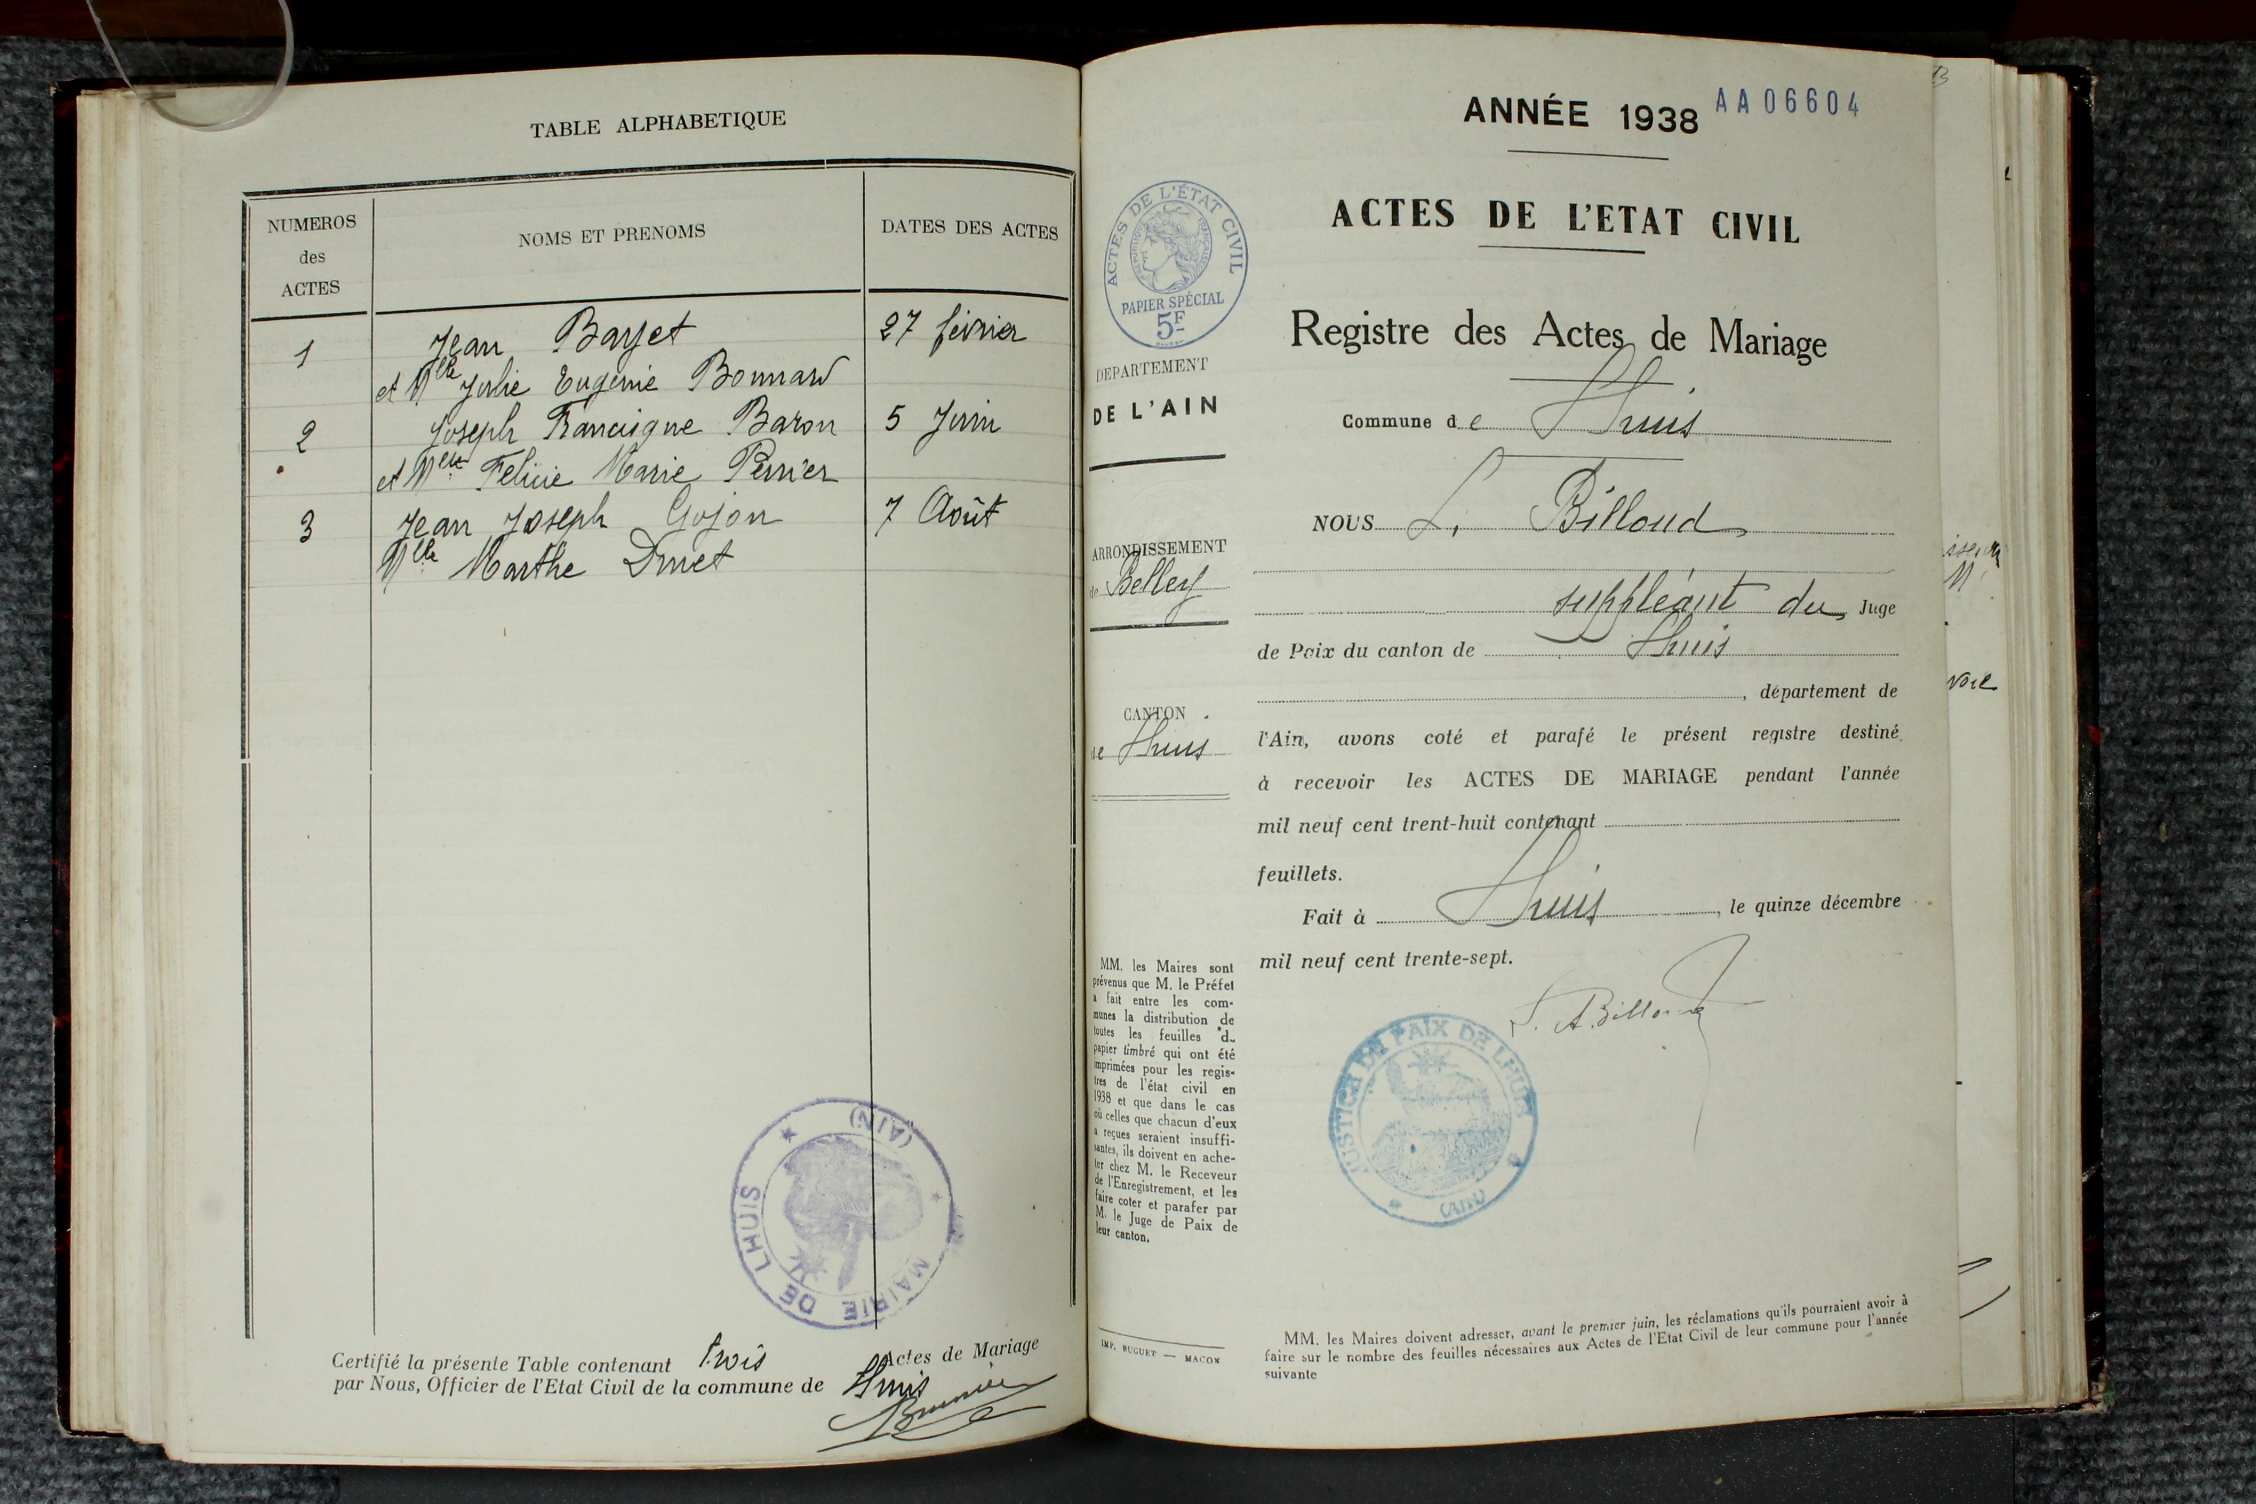 TABLE ALPHABETIQUE
NUMEROS
des
ACTES
NOMS ET PRENOMS
DATES DES ACTES
1
Jean Barjet
27 février
et Mlle Julie Eugénie Bonnard
2
Joseph Francisque Baron
5 Juin
et Melle Felicie Marie Perrier
3
Jean Joseph Gojon
7 Août
Mlle Marthe Druet
Certifié la présente Table contenant trois Actes de Mariage
par Nous, Officier de l'Etat Civil de la commune de Lhuis
MAIRIE DE LHUIS
(AIN)
ANNÉE 1938
AA06604
ACTES DE L'ETAT CIVIL
Registre des Actes de Mariage
Commune de Lhuis
ACTES DE L'ÉTAT CIVIL
RÉPUBLIQUE FRANÇAISE
PAPIER SPÉCIAL
5F
DEPARTEMENT
DE L'AIN
ARRONDISSEMENT
de Belley
CANTON
de Lhuis
NOUS L. Billoud
suppléant du Juge
de Paix du canton de Lhuis
, département de
l'Ain, avons coté et parafé le présent registre destiné
à recevoir les ACTES DE MARIAGE pendant l'année
mil neuf cent trent-huit contenant
feuillets.
Fait à Lhuis, le quinze décembre
mil neuf cent trente-sept.
L. A. Billoud
JUSTICE DE PAIX DE LHUIS
(AIN)
MM. les Maires sont
prévenus que M. le Préfet
a fait entre les com-
munes la distribution de
toutes les feuilles de
papier timbré qui ont été
imprimées pour les regis-
tres de l'état civil en
1938 et que dans le cas
où celles que chacun d'eux
a reçues seraient insuffi-
santes, ils doivent en ache-
ter chez M. le Receveur
de l'Enregistrement, et les
faire coter et parafer par
M. le Juge de Paix de
leur canton.
IMP. BUGUET — MACON
MM. les Maires doivent adresser, avant le premier juin, les réclamations qu'ils pourraient avoir à
faire sur le nombre des feuilles nécessaires aux Actes de l'Etat Civil de leur commune pour l'année
suivante